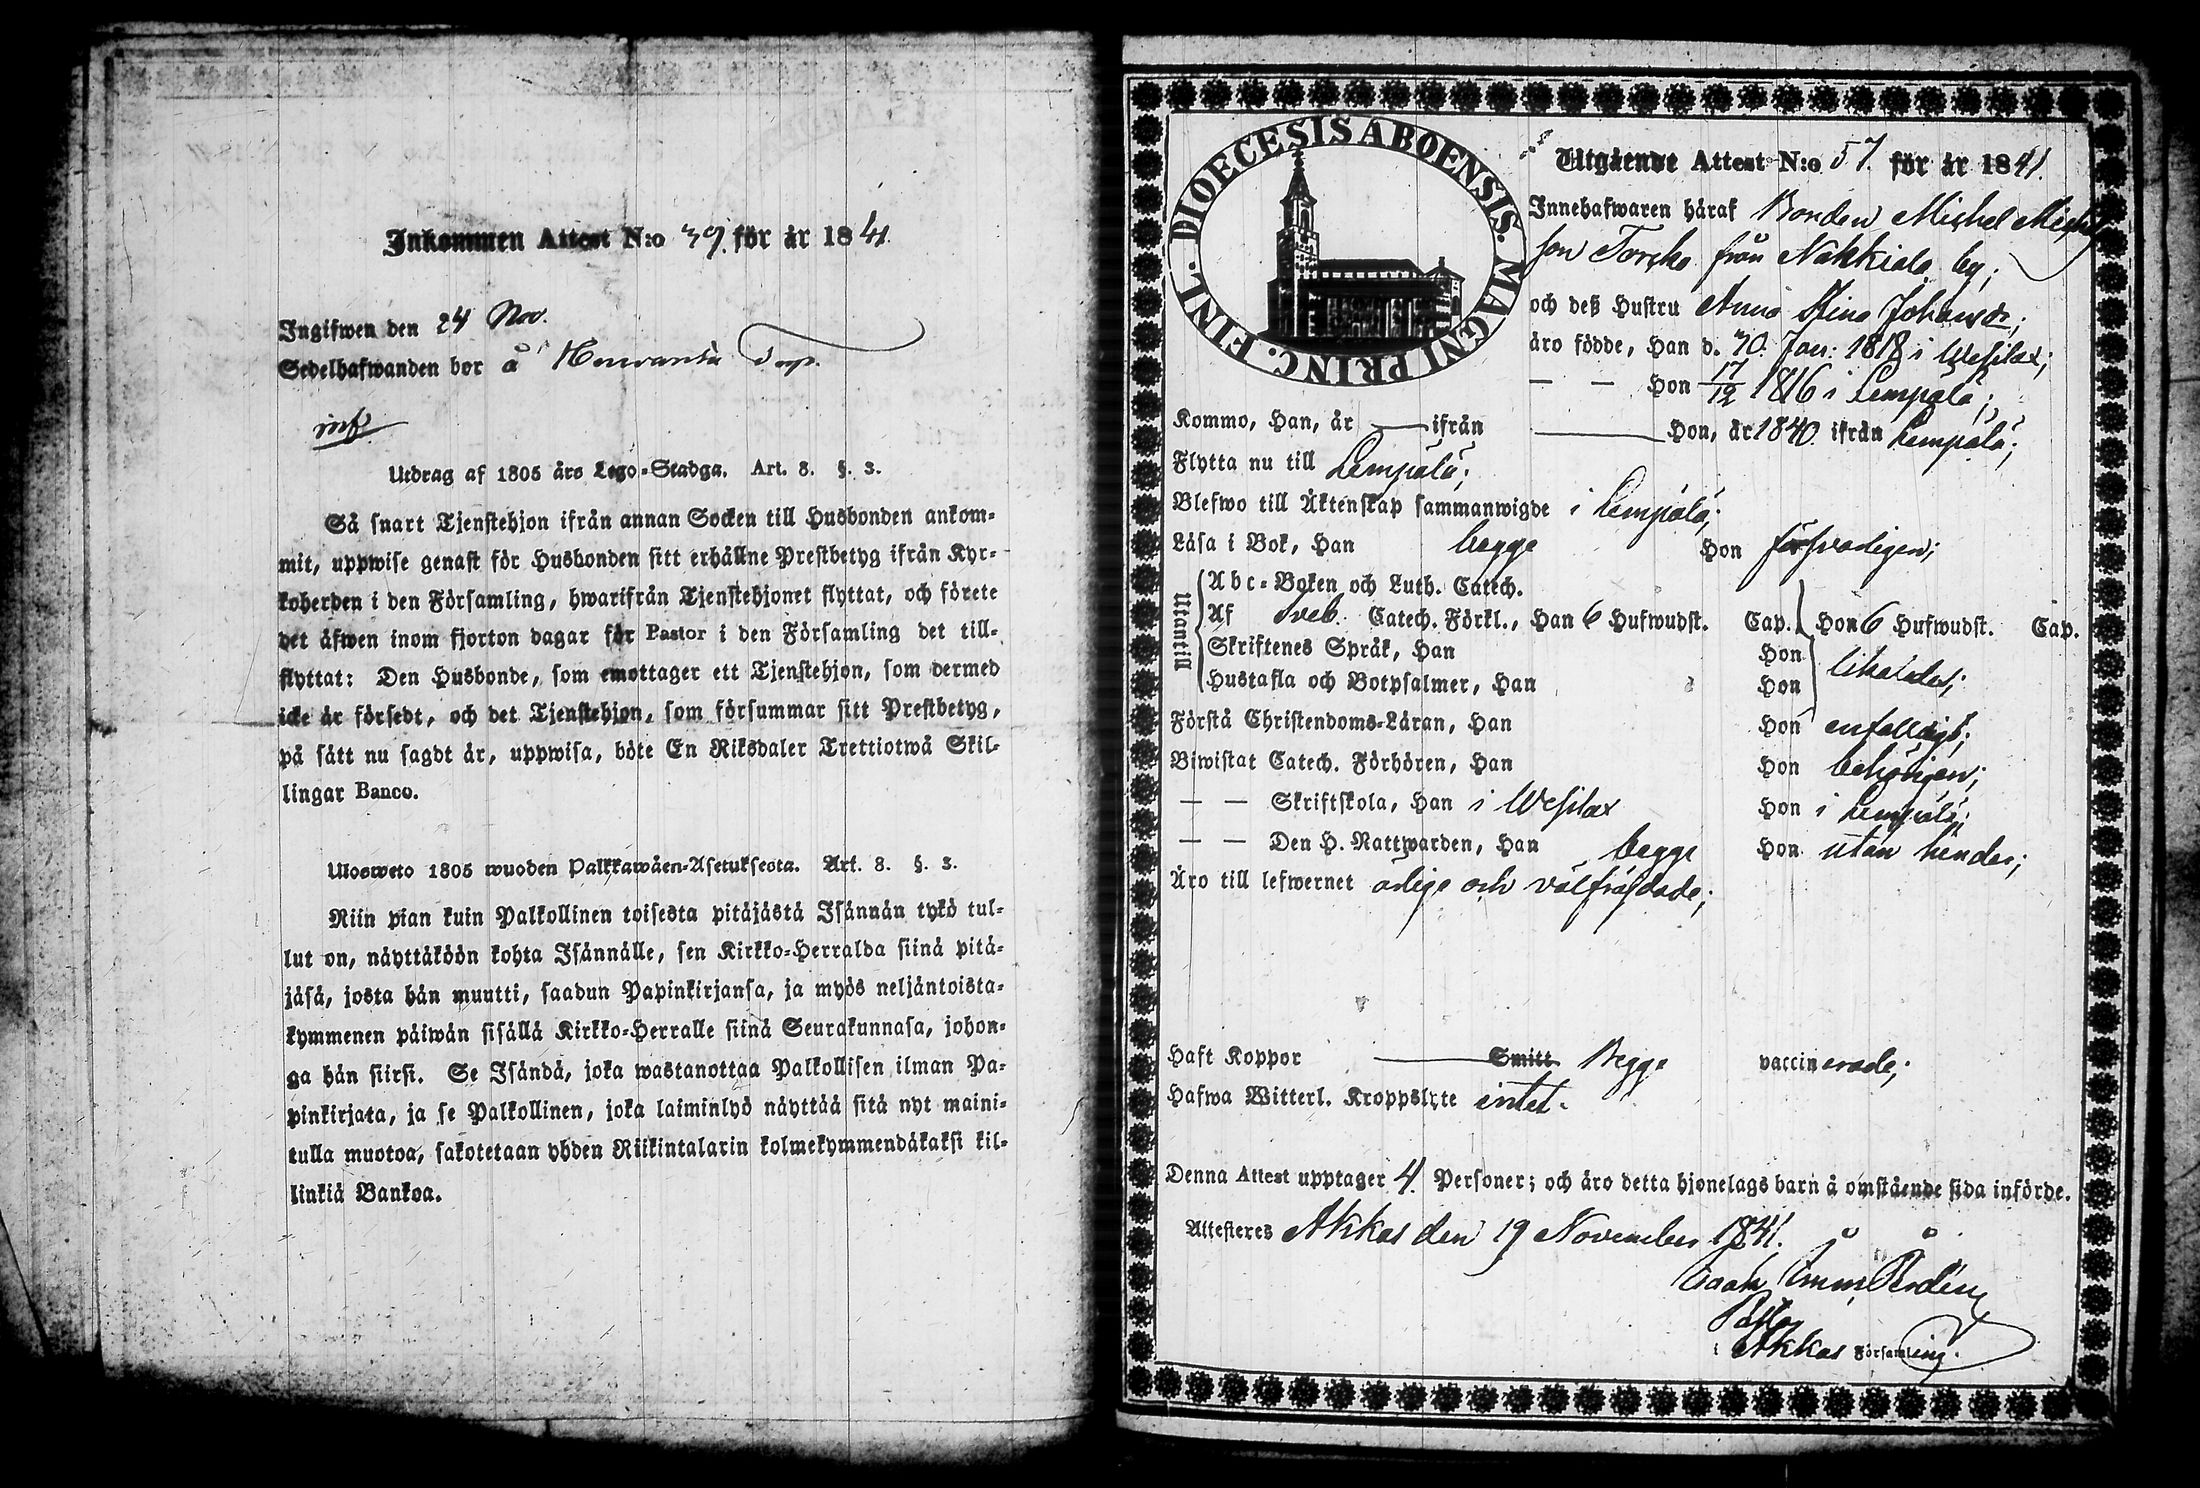 Inkommen Attest N:o 39. för år 1841
Ingifwen den 24 Nov.
Sedelhafwanden bor å
inf
Utdrag af 1805 års Lego-Stadga. Art. 8. §. 3.
Så snart Tjenstehjon ifrån annan Socken till Husbonden ankom-
mit, uppwise genast för Husbonden sitt erhållne Prestbetyg ifrån Kyr-
koherden i den Församling, hwarifrån Tjenstehjonet flyttat, och förete
det äfwen inom fjorton dagar för Pastor i den Församling det till-
flyttat: Den Husbonde, som emottager ett Tjenstehjon, som dermed
icke är försedt, och det Tjenstehjon, som försummar sitt Prestbetyg,
på sätt nu sagdt är, uppwisa, böte En Riksdaler Trettiotwå Skil-
lingar Banco.
Ulosweto 1805 wuoden Palkkawäen-Asetuksesta. Art. 8. §. 3.
Niin pian kuin Palkollinen toisesta pitäjästä Isännän tykö tul-
lut on, näyttäköön kohta Isännälle, sen Kirkko-Herralda siinä pitä-
jäsä, josta hän muutti, saadun Papinkirjansa, ja myös neljäntoista-
kymmenen päiwän sisällä Kirkko-Herralle siinä Seurakunnasa, johon-
ga hän siirsi. Se Isändä, joka wastanottaa Palkollisen ilman Pa-
pinkirjata, ja se Palkollinen, joka laiminlyö näyttää sitä nyt maini-
tulla muotoa, sakotetaan yhden Riikintalarin kolmekymmendäkaksi kil-
linkiä Bankoa.
DIOECESIS ABOENSIS. MAGNI PRINC. FINL.
Utgående Attest N:o 57. för år 1841.
Innehafwaren häraf Bonden Michel Michels
son från Nakkiala by;
och deß Hustru Anna Stina Johansdr;
äro födde, Han d. 30. Jan: 1818 i Wesilax;
— — Hon 17/12 1816 i Lempälä;
Kommo, Han, år — ifrån — Hon, år 1840 ifrån Lempälä;
Flytta nu till Lempälä;
Blefwo till Äktenskap sammanwigde i Lempälä;
Läsa i Bok, Han begge Hon försvarligen;
Utantill
Abc-Boken och Luth. Catech.
Af Sveb. Catech. Förkl., Han 6 Hufwudst. Cap. Hon 6 Hufwudst. Cap.
Skriftenes Språk, Han Hon
Hustafla och Botpsalmer, Han Hon likaledes;
Förstå Christendoms-Läran, Han Hon enfalldigt;
Biwistat Catech. Förhören, Han Hon behörigen;
— — Skriftskola, Han i Wesilax Hon i Lempälä;
— — Den H. Nattwarden, Han begge Hon utan hinder;
Äro till lefwernet ärlige och välfräjdade;
Haft Koppor — Smitt Begge vaccinerade;
Hafwa Witterl. Kroppslyte intet.
Denna Attest upptager 4. Personer; och äro detta hjonelags barn å omstående sida införde.
Attesteras Akkas den 19 November 1841.
Pastor
i Akkas Församling.